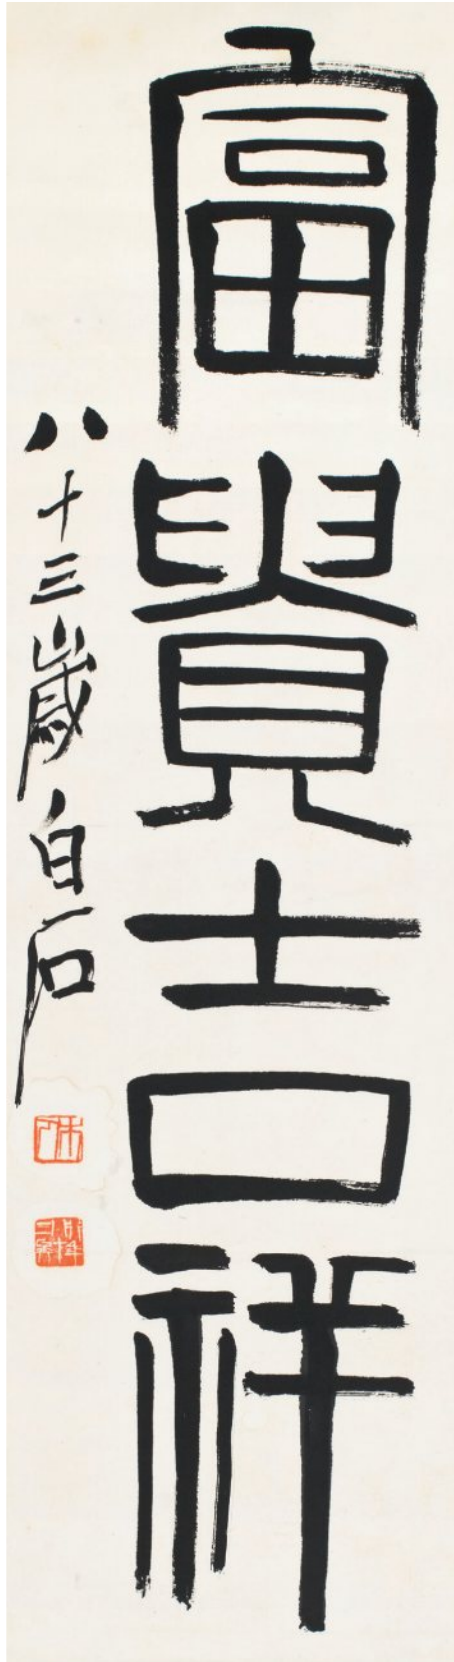 富貴吉祥
八十三歲白石